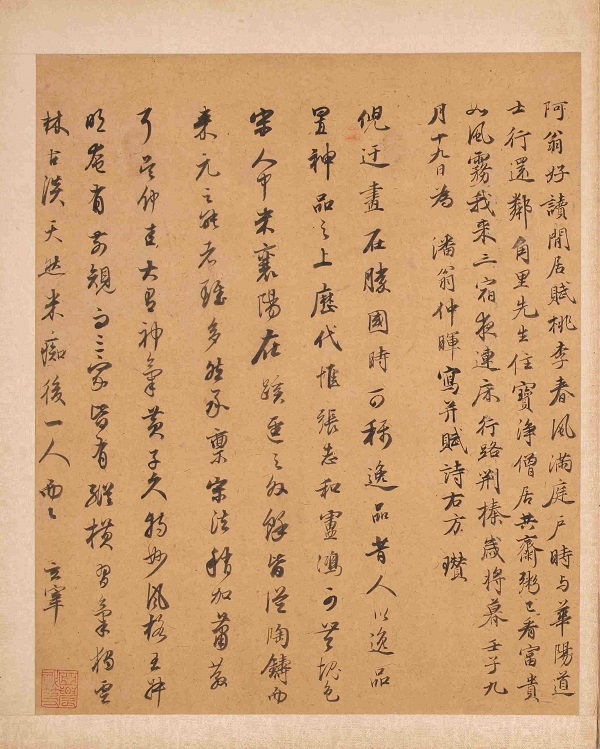 阿翁好讀閒居賦桃李春風滿庭戶時与華陽道
士行還鄰角里先生住寶淨僧居共齋粥已看富貴
如風霧我来三宿夜連床行路荆榛歲将暮壬子九
月十九日為 潘翁仲暉寫并賦詩右方 瓚
倪迂畫在勝國時可稱逸品昔人以逸品
置神品之上歷代惟張志和盧鴻可無愧色
宋人中米襄陽在蹊逕之外餘皆從陶鑄而
来元之能者雖多然承稟宋法稍加蕭散
耳吳仲圭大有神氣黄子久特妙風格王叔
明奄有前規而三家皆有縱横習氣獨雲
林古淡天然米痴後一人而已 玄宰